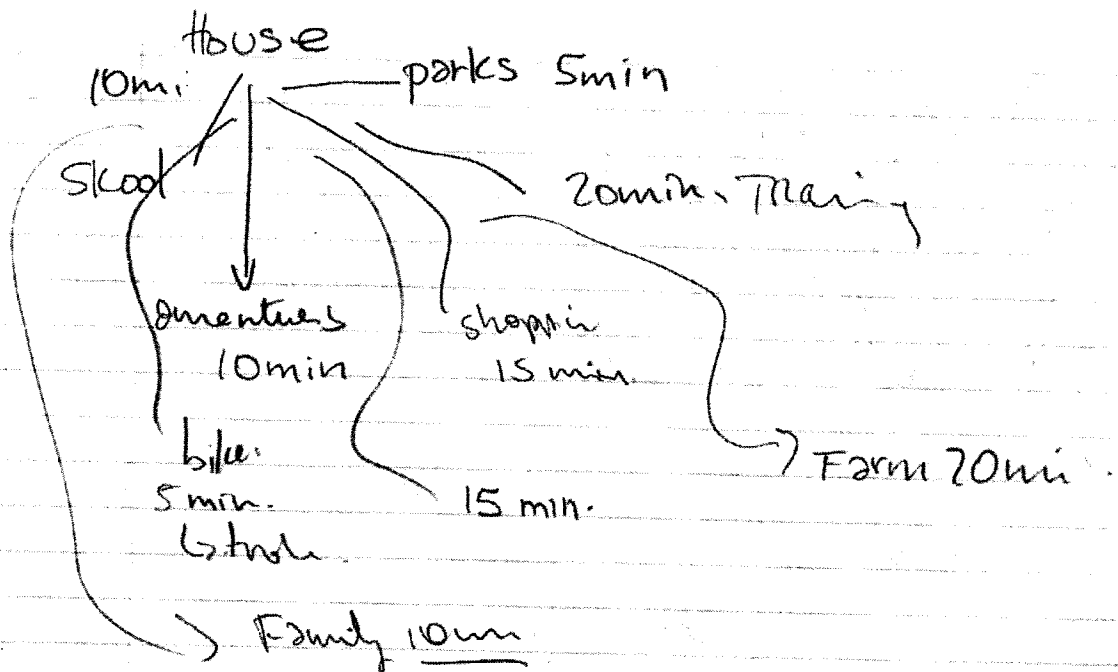 House
10mi
parks 5min
Skool
20min. Training
10min
shoppin
15 min.
bike.
5 min.
15 min.
Farm 20mi.
Family 10min